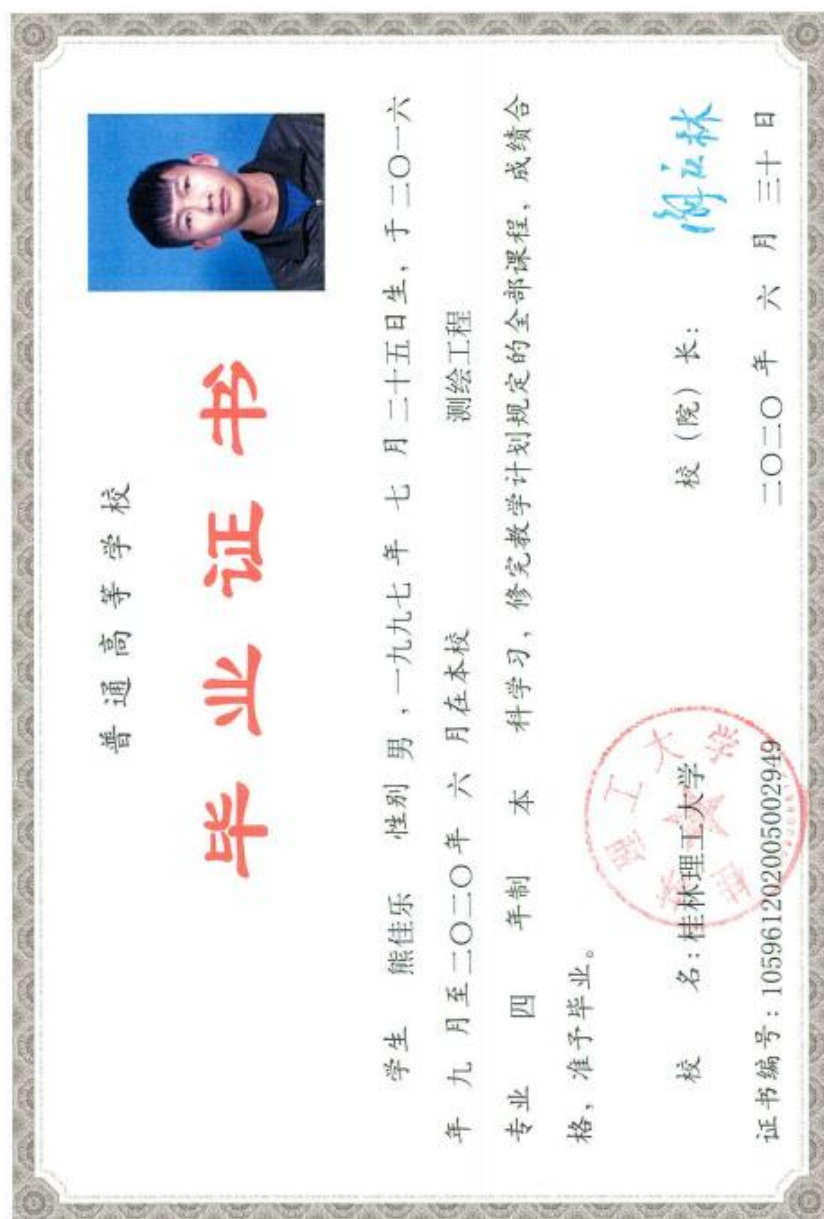 普通高等学校
毕业证书
学生 熊佳乐 性别 男 ，一九九七 年 七 月 二十五日生，于 二〇一六
年 九 月至 二〇二〇 年 六 月在本校 测绘工程
专业 四 年制 本 科学习，修完教学计划规定的全部课程，成绩合
格，准予毕业。
校 名：桂林理工大学 校（院）长：
证书编号：105961202005002949 二〇二〇 年 六 月 三十 日
桂林理工大学